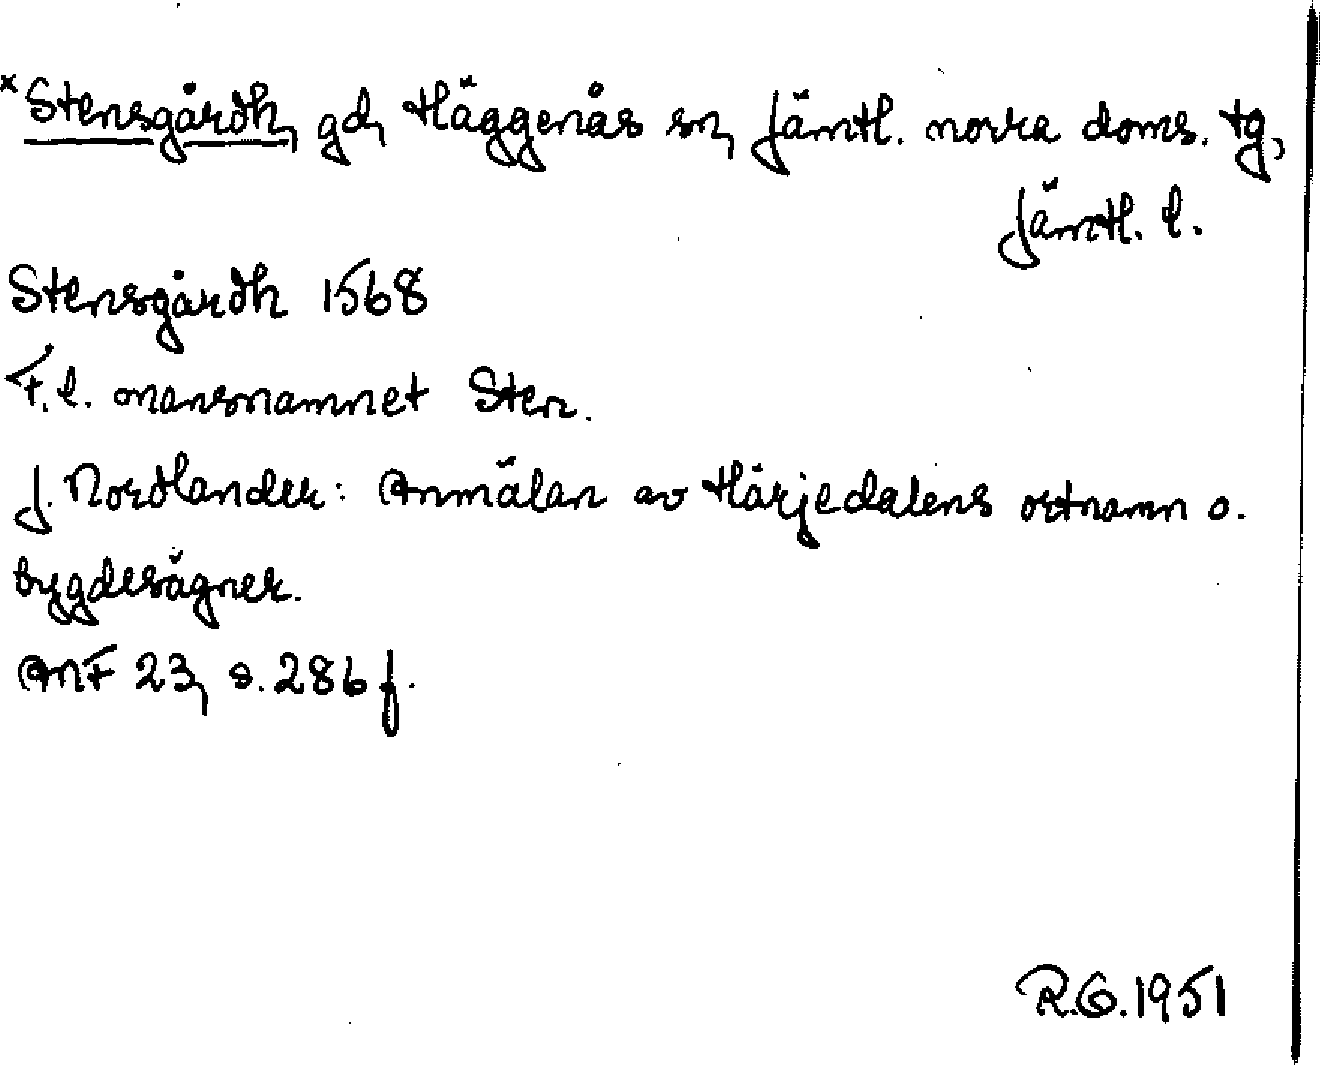 *Stensgårdh, gd, Häggenås sn, Jämtl. norra doms. tg,
Jämtl. l.
Stensgårdh 1568
F.l. mansnamnet Sten.
J. Nordlander: Anmälan av Härjedalens ortnamn o.
bygdesägner.
ANF 23, s. 286 f.
R.G. 1951